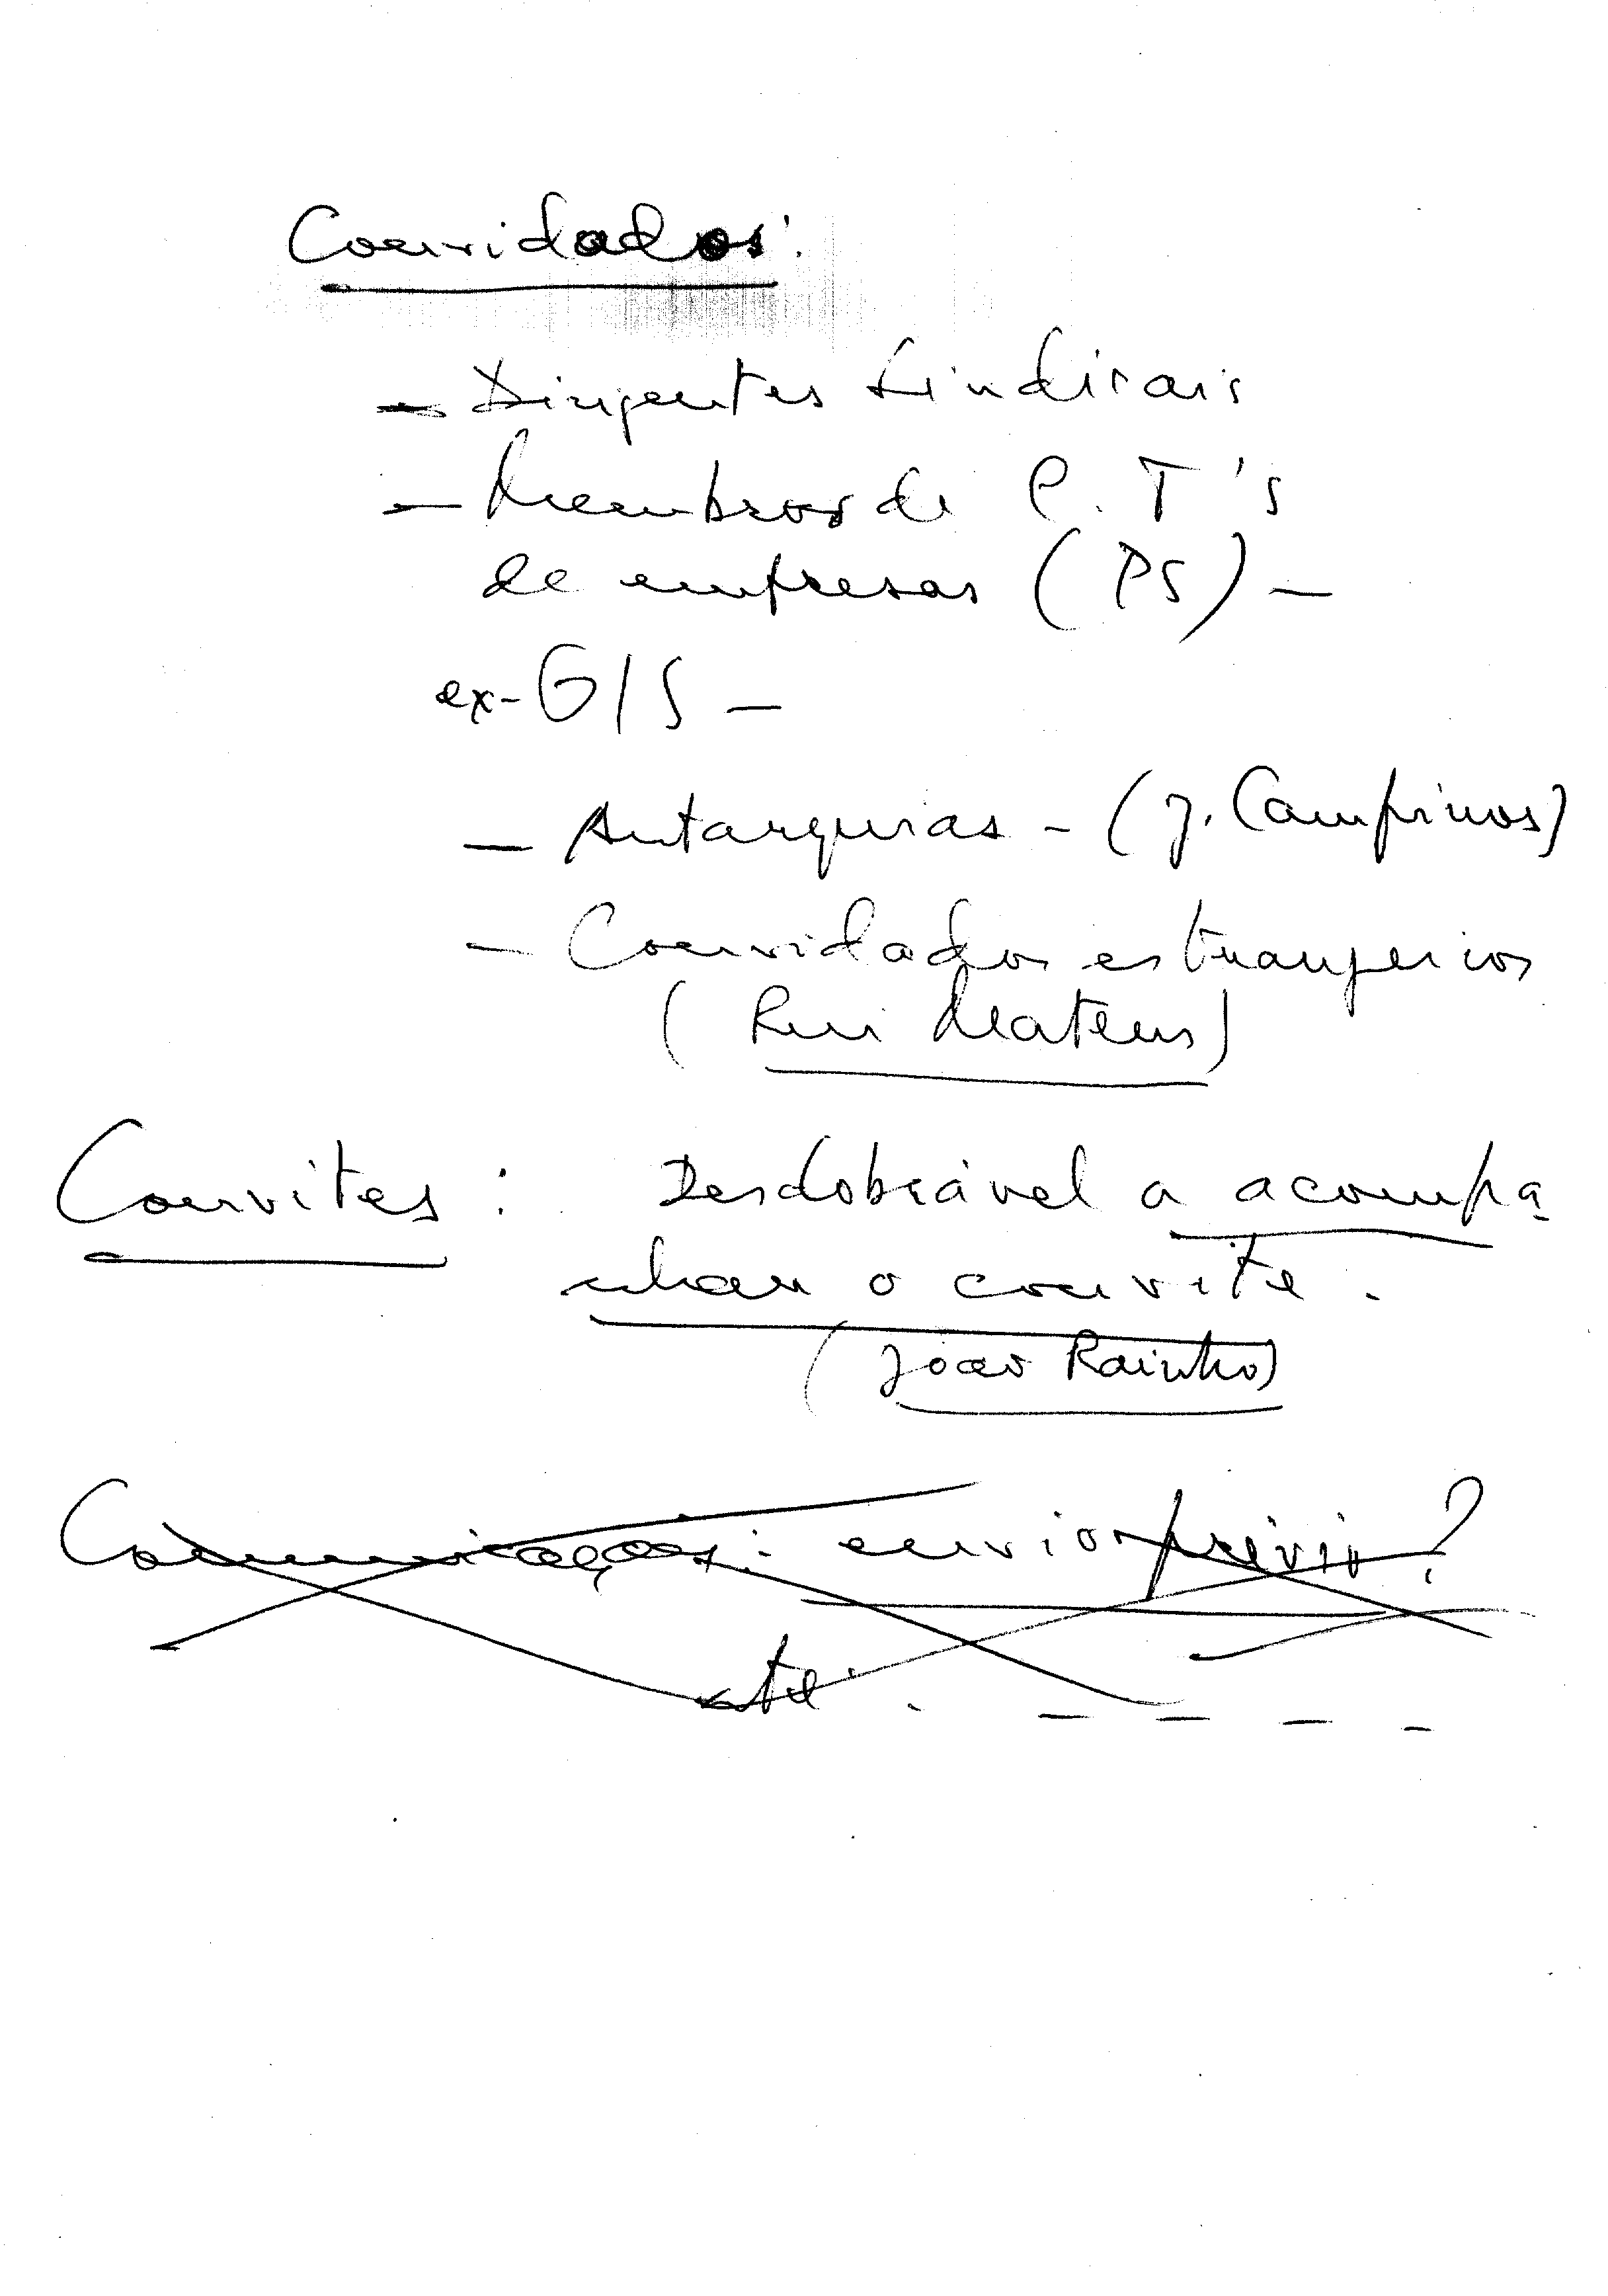 Convidados:
- Dirigentes Sindicais
- Membros de C. T's
de empresas (PS) -
ex-GIS -
- Autarquias - (J. Campinos)
- Convidados estrangeiros
(Rui Mateus)
Convites : Desdobrável a acompa
nhar o convite.
(João Rainho)
Comunicações: envio prévio?
até: . - - - -